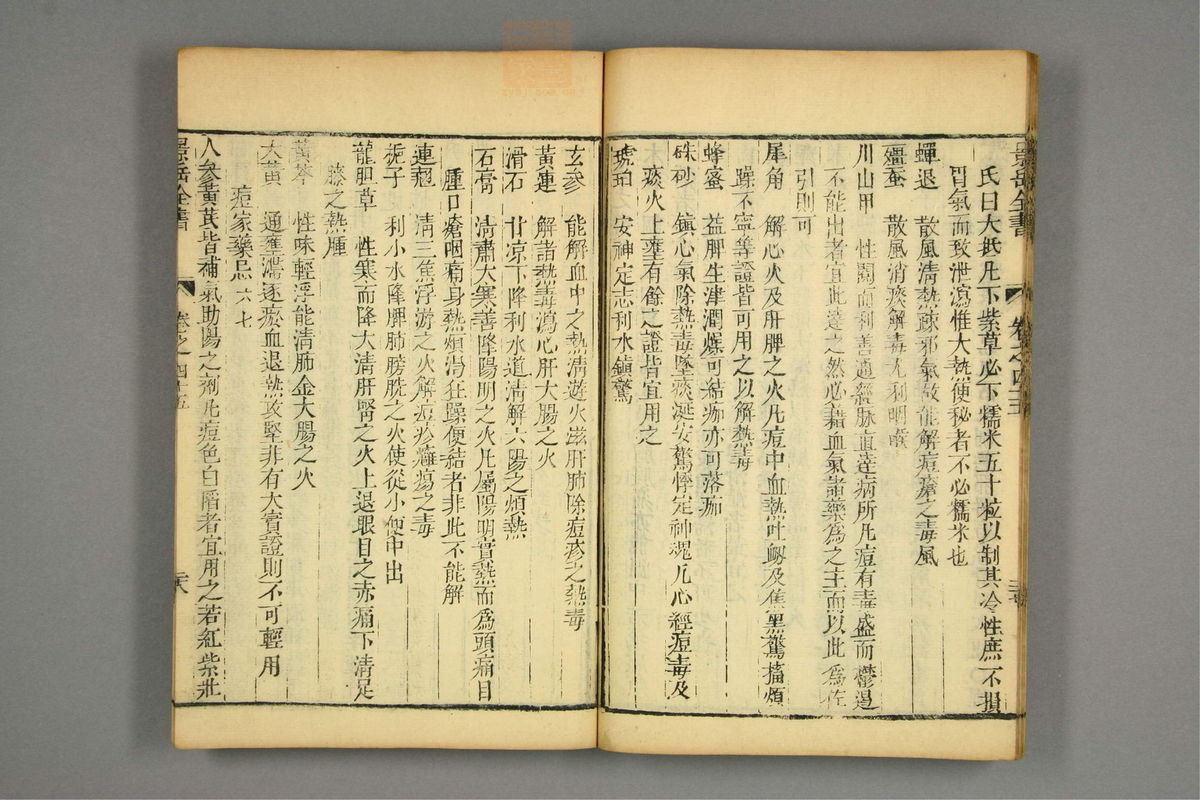 氏曰大抵凡下紫草必下糯米五十粒以制其冷性庶不損
胃氣而致泄瀉惟大熱便秘者不必糯米也
蟬退 散風清熱疎邪氣故能解痘瘡之毒風
殭蚕 散風消痰解毒尤利咽喉
川山甲 性鬭而利善通經脉直達病所凡痘有毒盛而鬱遏
不能出者宜此達之然必藉血氣諸藥爲之主而以此爲佐
引則可
犀角 解心火及肝脾之火凡痘中血熱吐衂及焦黑驚搐煩
躁不寧等證皆可用之以解熱毒
蜂蜜 益脾生津潤燥可結痂亦可落痂
硃砂 鎮心氣除熱毒墜痰涎安驚悸定神魂凡心經痘毒及
痰火上壅有餘之證皆宜用之
琥珀 安神定志利水鎮驚
景岳全書 卷之四十五
玄參 能解血中之熱清遊火滋肝肺除痘疹之熱毒
黃連 解諸熱毒瀉心肝大腸之火
滑石 甘凉下降利水道清解六陽之煩熱
石膏 清肅大寒善降陽明之火凡屬陽明實熱而爲頭痛目
腫口瘡咽痛身熱煩渴狂躁便結者非此不能解
連翹 清三焦浮游之火解痘疹癰瘍之毒
梔子 利小水降脾肺膀胱之火使從小便中出
龍胆草 性寒而降大清肝腎之火上退眼目之赤痛下清足
膝之熱腫
黃芩 性味輕浮能清肺金大腸之火
大黃 通壅滯逐瘀血退熱攻堅非有大實證則不可輕用
痘家藥忌 六七
人參黃芪皆補氣助陽之劑凡痘色白陷者宜用之若紅紫壯
景岳全書 卷之四十五 六